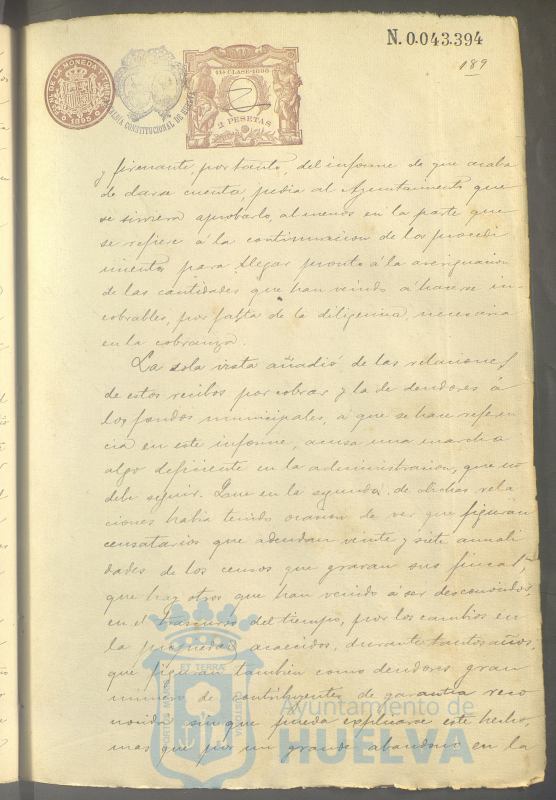 N. 0.043.394
189
FAB. NAL. DE LA MONEDA Y TIMBRE
1895
ALCALDIA CONSTITUCIONAL DE HUELVA
11ª CLASE-1895
2 PESETAS
y firmante, por tanto, del informe de que acaba
de darse cuenta, pedia al Ayuntamiento que
se sirviera aprobarlo, al menos en la parte que
se refiere á la continuacion de los procedi
mientos para llegar pronto á la averiguacion
de las cantidades que han venido á hacerse in-
cobrables, por falta de la diligencia necesaria
en la cobranza.
La sola vista añadió de las relaciones
de estos recibos por cobrar y la de deudores á
los fondos municipales, á que se hace referen
cia en este informe, acusa una marcha
algo deficiente en la administracion, que no
debe seguir. Que en la segunda de dichas rela
ciones habia tenido ocasion de ver que figuran
censatarios que adeudan veinte y siete anuali
dades de los censos que gravan sus fincas,
que hay otros que han venido á ser desconocidos,
en el trascurso del tiempo, por los cambios en
la propiedad acaecidos, durante tantos años,
que figuran tambien como deudores gran
número de contribuyentes de garantia reco
nocida sin que pueda explicarse este hecho,
mas que por un grande abandono en la
PORTUS MARIS ET TERRAE CUSTODIA
Ayuntamiento de
HUELVA